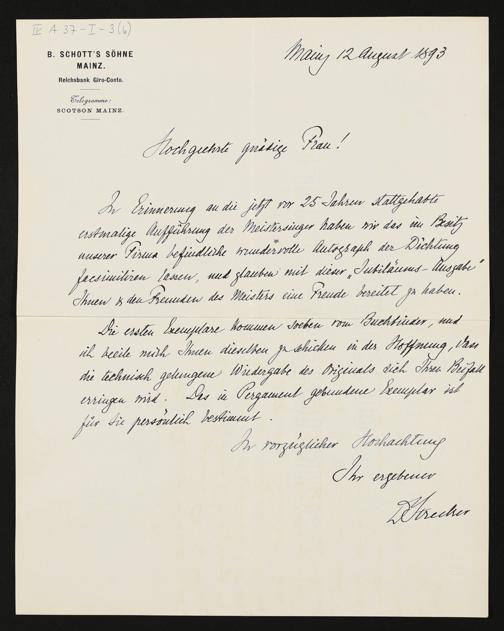 IV A 37-I-3(6)
B. SCHOTT'S SÖHNE
MAINZ.
Reichsbank Giro-Conto.
Telegramme:
SCOTSON MAINZ.
Mainz 12 August 1893
Hochgeehrte gnädige Frau!
In Erinnerung an die jetzt vor 25 Jahren stattgehabte
erstmalige Aufführung der Meistersinger haben wir das im Besitz
unserer Firma befindliche wundervolle Autograph der Dichtung
facsimiliren lassen, und glauben mit dieser „Jubiläums-Ausgabe“
Ihnen & den Freunden des Meisters eine Freude bereitet zu haben.
Die ersten Exemplare kommen soeben vom Buchbinder, und
ich beeile mich Ihnen dieselben zu schicken in der Hoffnung, dass
die technisch gelungene Wiedergabe des Originals sich Ihren Beifall
erringen wird. Das in Pergament gebundene Exemplar ist
für Sie persönlich bestimmt.
In vorzüglicher Hochachtung
Ihr ergebener
Dr Strecker